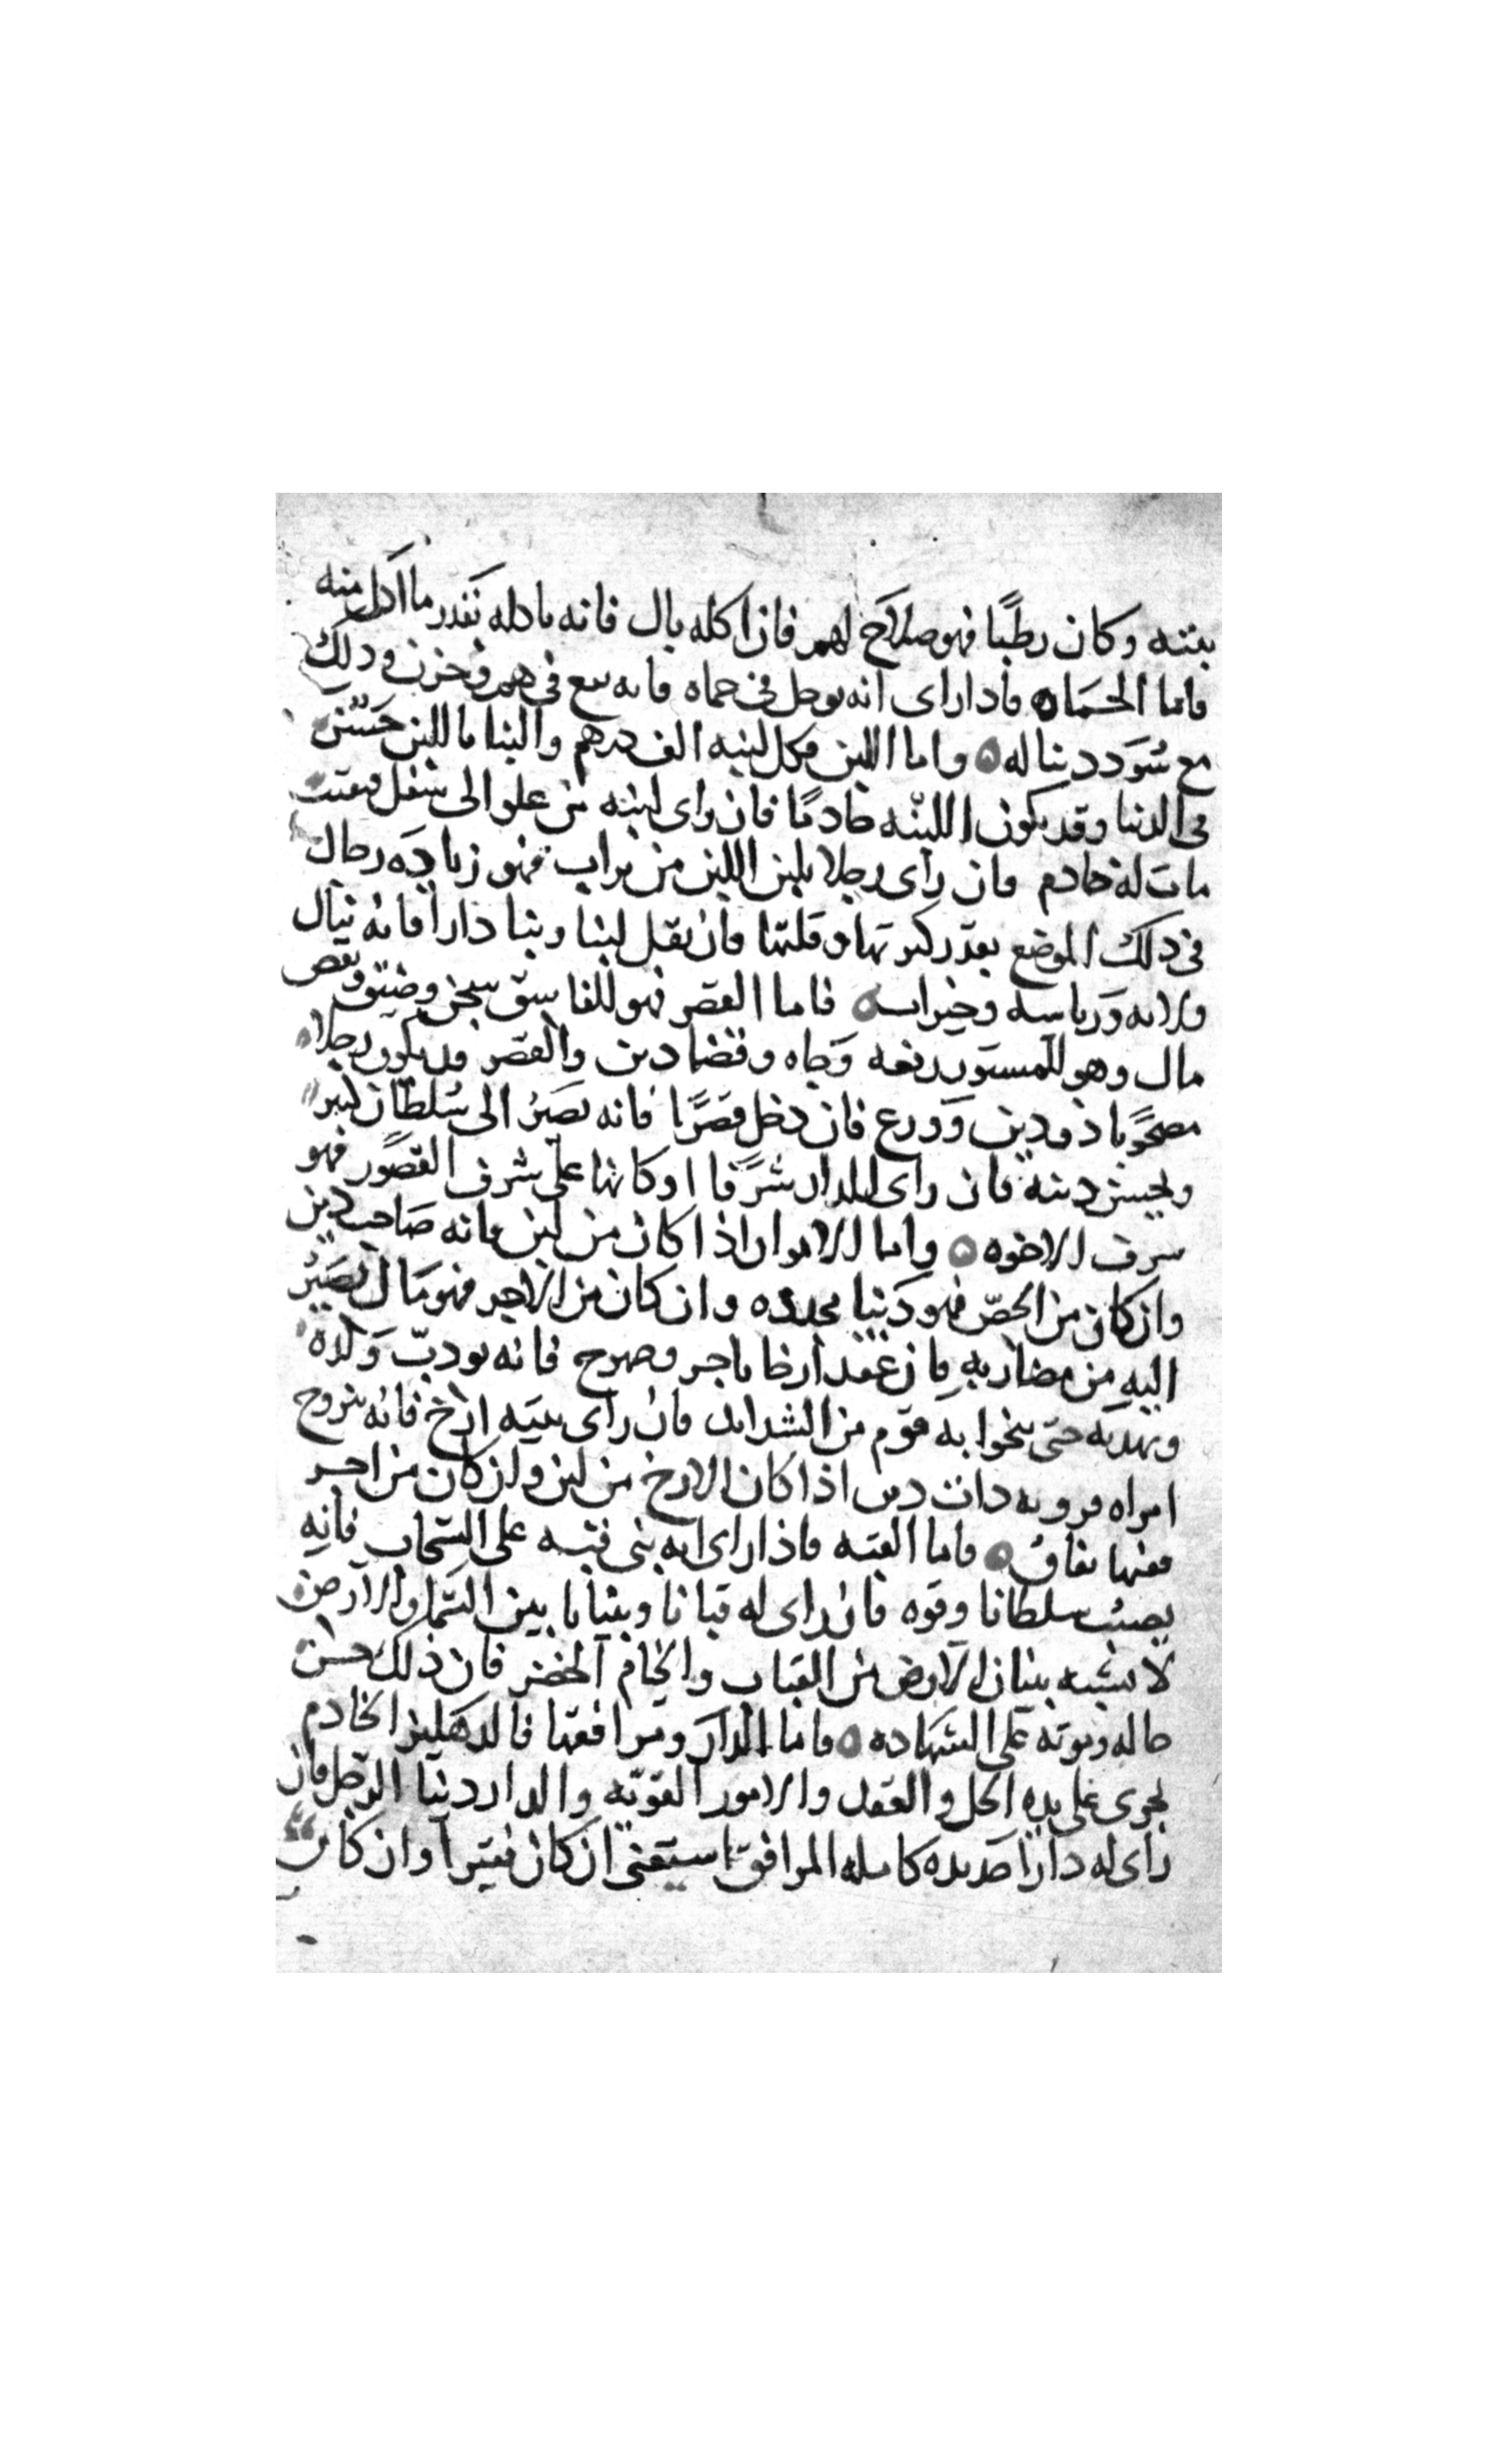 بيته وكان رطبًا فهو صلاح لهم فان اكله بال فانه ياكله بقدر ما اكل منه
فاما الحماه فاذا راى انه يوحل فى حماه فانه يقع فى هم وحزن وذلك
مع سودد يناله ۞ واما اللبن فكل لبنه الف درهم والبنا باللبن حسن
فى الدنيا وقد يكون اللبنه خادمًا فان راى لبنه من علو الى سفل فتفتت
مات له خادم فان راى رجلا يلبن اللبن من تراب فهو زياده رجال
فى ذلك الموضع بقدر كثرتها وقلتها فان نقل لبنا وبنا دارا فانه ينال
ولايه ورياسه وخيرات ۞ فاما القصر فهو للفاسق سجن وضيق ونقص
مال وهو للمستور رفعه وجاه وقضا دين والقصر قد يكون رجلا
مصحوبا ذو دين وورع فان دخل قصرًا فانه يصير الى سلطان كبير
ويحسن دينه فان راى للدار شرفا او كانها على شرف القصور فهو
شرف الاخوه ۞ واما الايوان اذا كان من لبن فانه صاحب دين
وان كان من الجصّ فهو دنيا مجدده وان كان من الاجر فهو مال يصير
اليه من مضاربه فان عقد ارخا باجر وصهرج فانه يودبّ ولده
ويهدبه حتى ينجوا به قوم من الشدايد فان راى ببيته ازخ فانه يتزوج
امراه قرويه ذات دين اذا كان الازخ من لبن وان كان من اجر
ففيها نفاق ۞ فاما القبه فاذا راى انه بنى قبه على السحاب فانه
يصيب سلطانا وقوه فان راى له قبانا وبنيانا بين السما والارض
لا يشبه بنيان الارض من القباب والخام الخضر فان ذلك حسن
حاله وموته على الشهاده ۞ فاما الدار ومرافقها فالدهليز الخادم
يجرى على يديه الحل والعقد والامور القويّه والدار دنيا الرجل فان
راى له دارا جديده كامله المرافق استغنى ان كان فقيرا وان كان